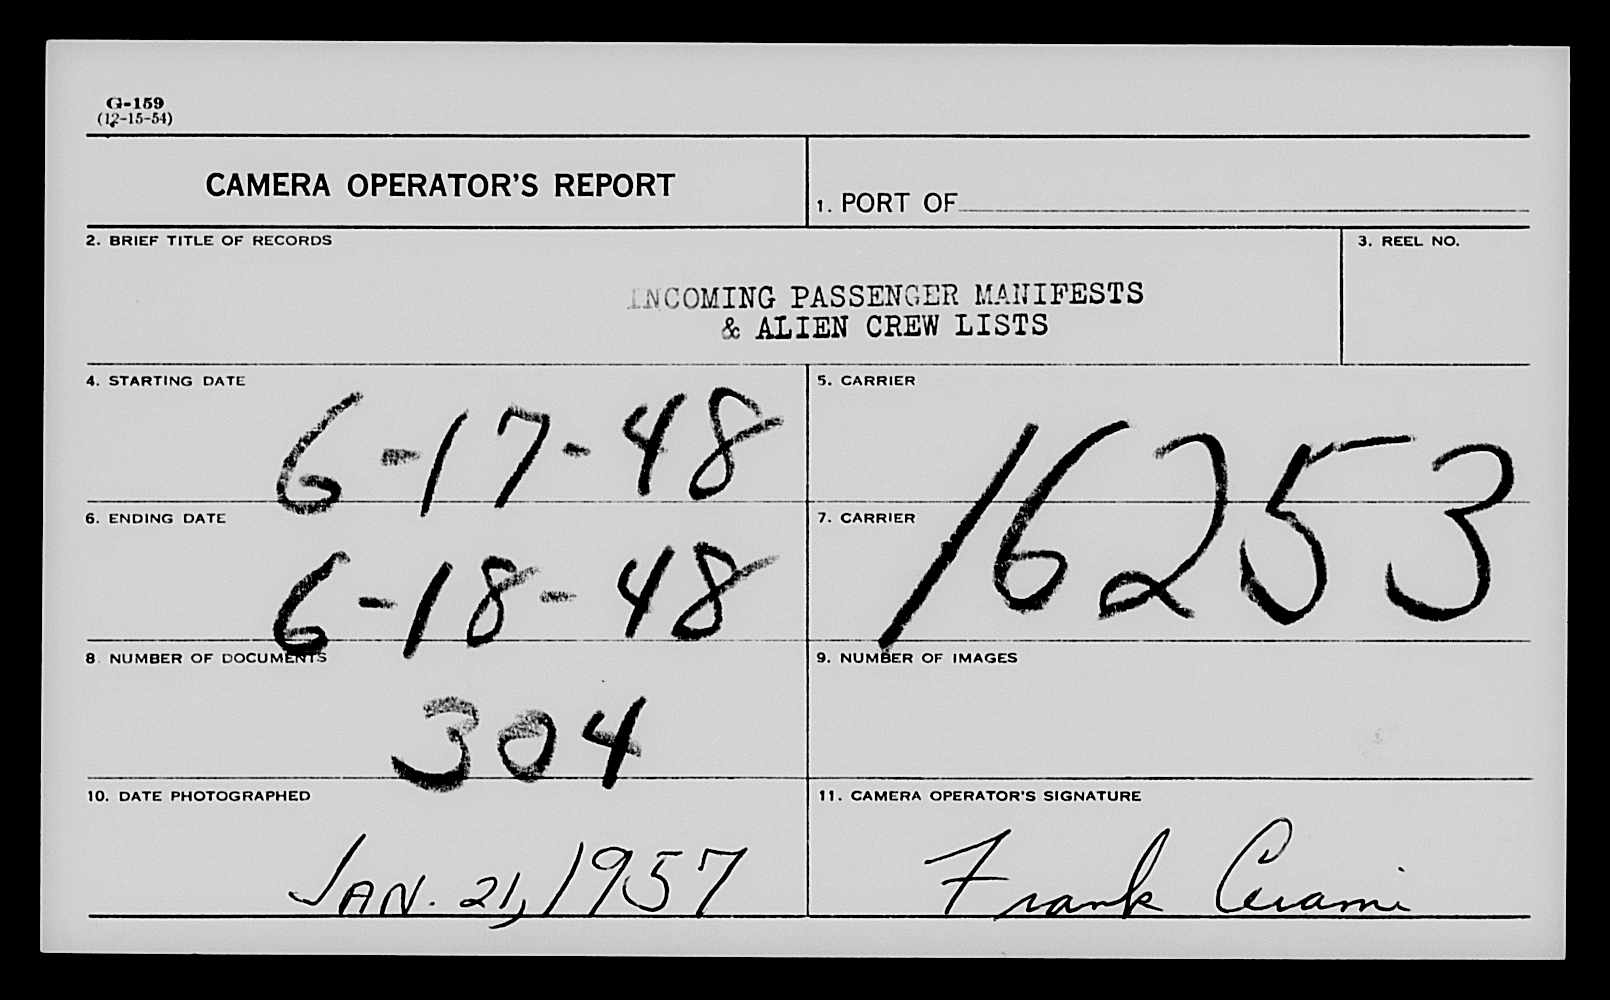 G-159
(12-15-54)
CAMERA OPERATOR'S REPORT
1. PORT OF
2. BRIEF TITLE OF RECORDS
3. REEL NO.
INCOMING PASSENGER MANIFESTS
& ALIEN CREW LISTS
4. STARTING DATE
6-17-48
5. CARRIER
16253
6. ENDING DATE
6-18-48
7. CARRIER
8. NUMBER OF DOCUMENTS
304
9. NUMBER OF IMAGES
10. DATE PHOTOGRAPHED
JAN. 21, 1957
11. CAMERA OPERATOR'S SIGNATURE
Frank Cerami